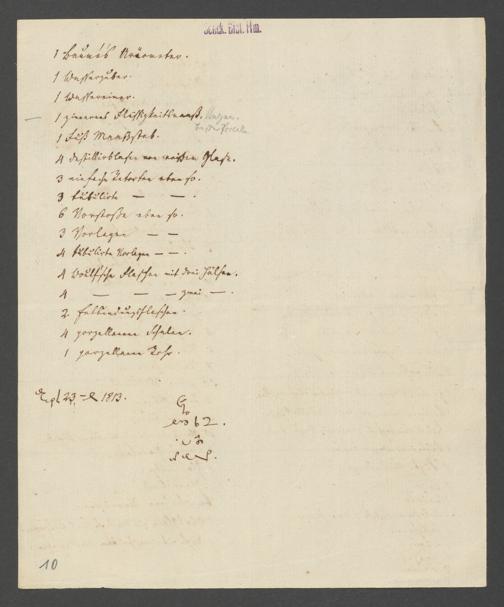 1 Baumé's Aräometer.
1 Wasserzuber.
1 Wassereimer.
1 zinnernes Flüssigkeitsmaaß.
1 Fuß Maaßstab.
4 Destillirblasen von weißem Glase.
3 einfache Retorten eben so.
3 tubulirte — —.
6 Vorstöße eben so.
3 Vorlagen — —
4 tubulirte Vorlagen — —.
4 Woulf'sche Flaschen mit drei Hälsen.
4 — — — zwei —.
2 Entbindungsflaschen.
4 porzellanne Schalen.
1 porzellann Rohr.
23 1813.
10